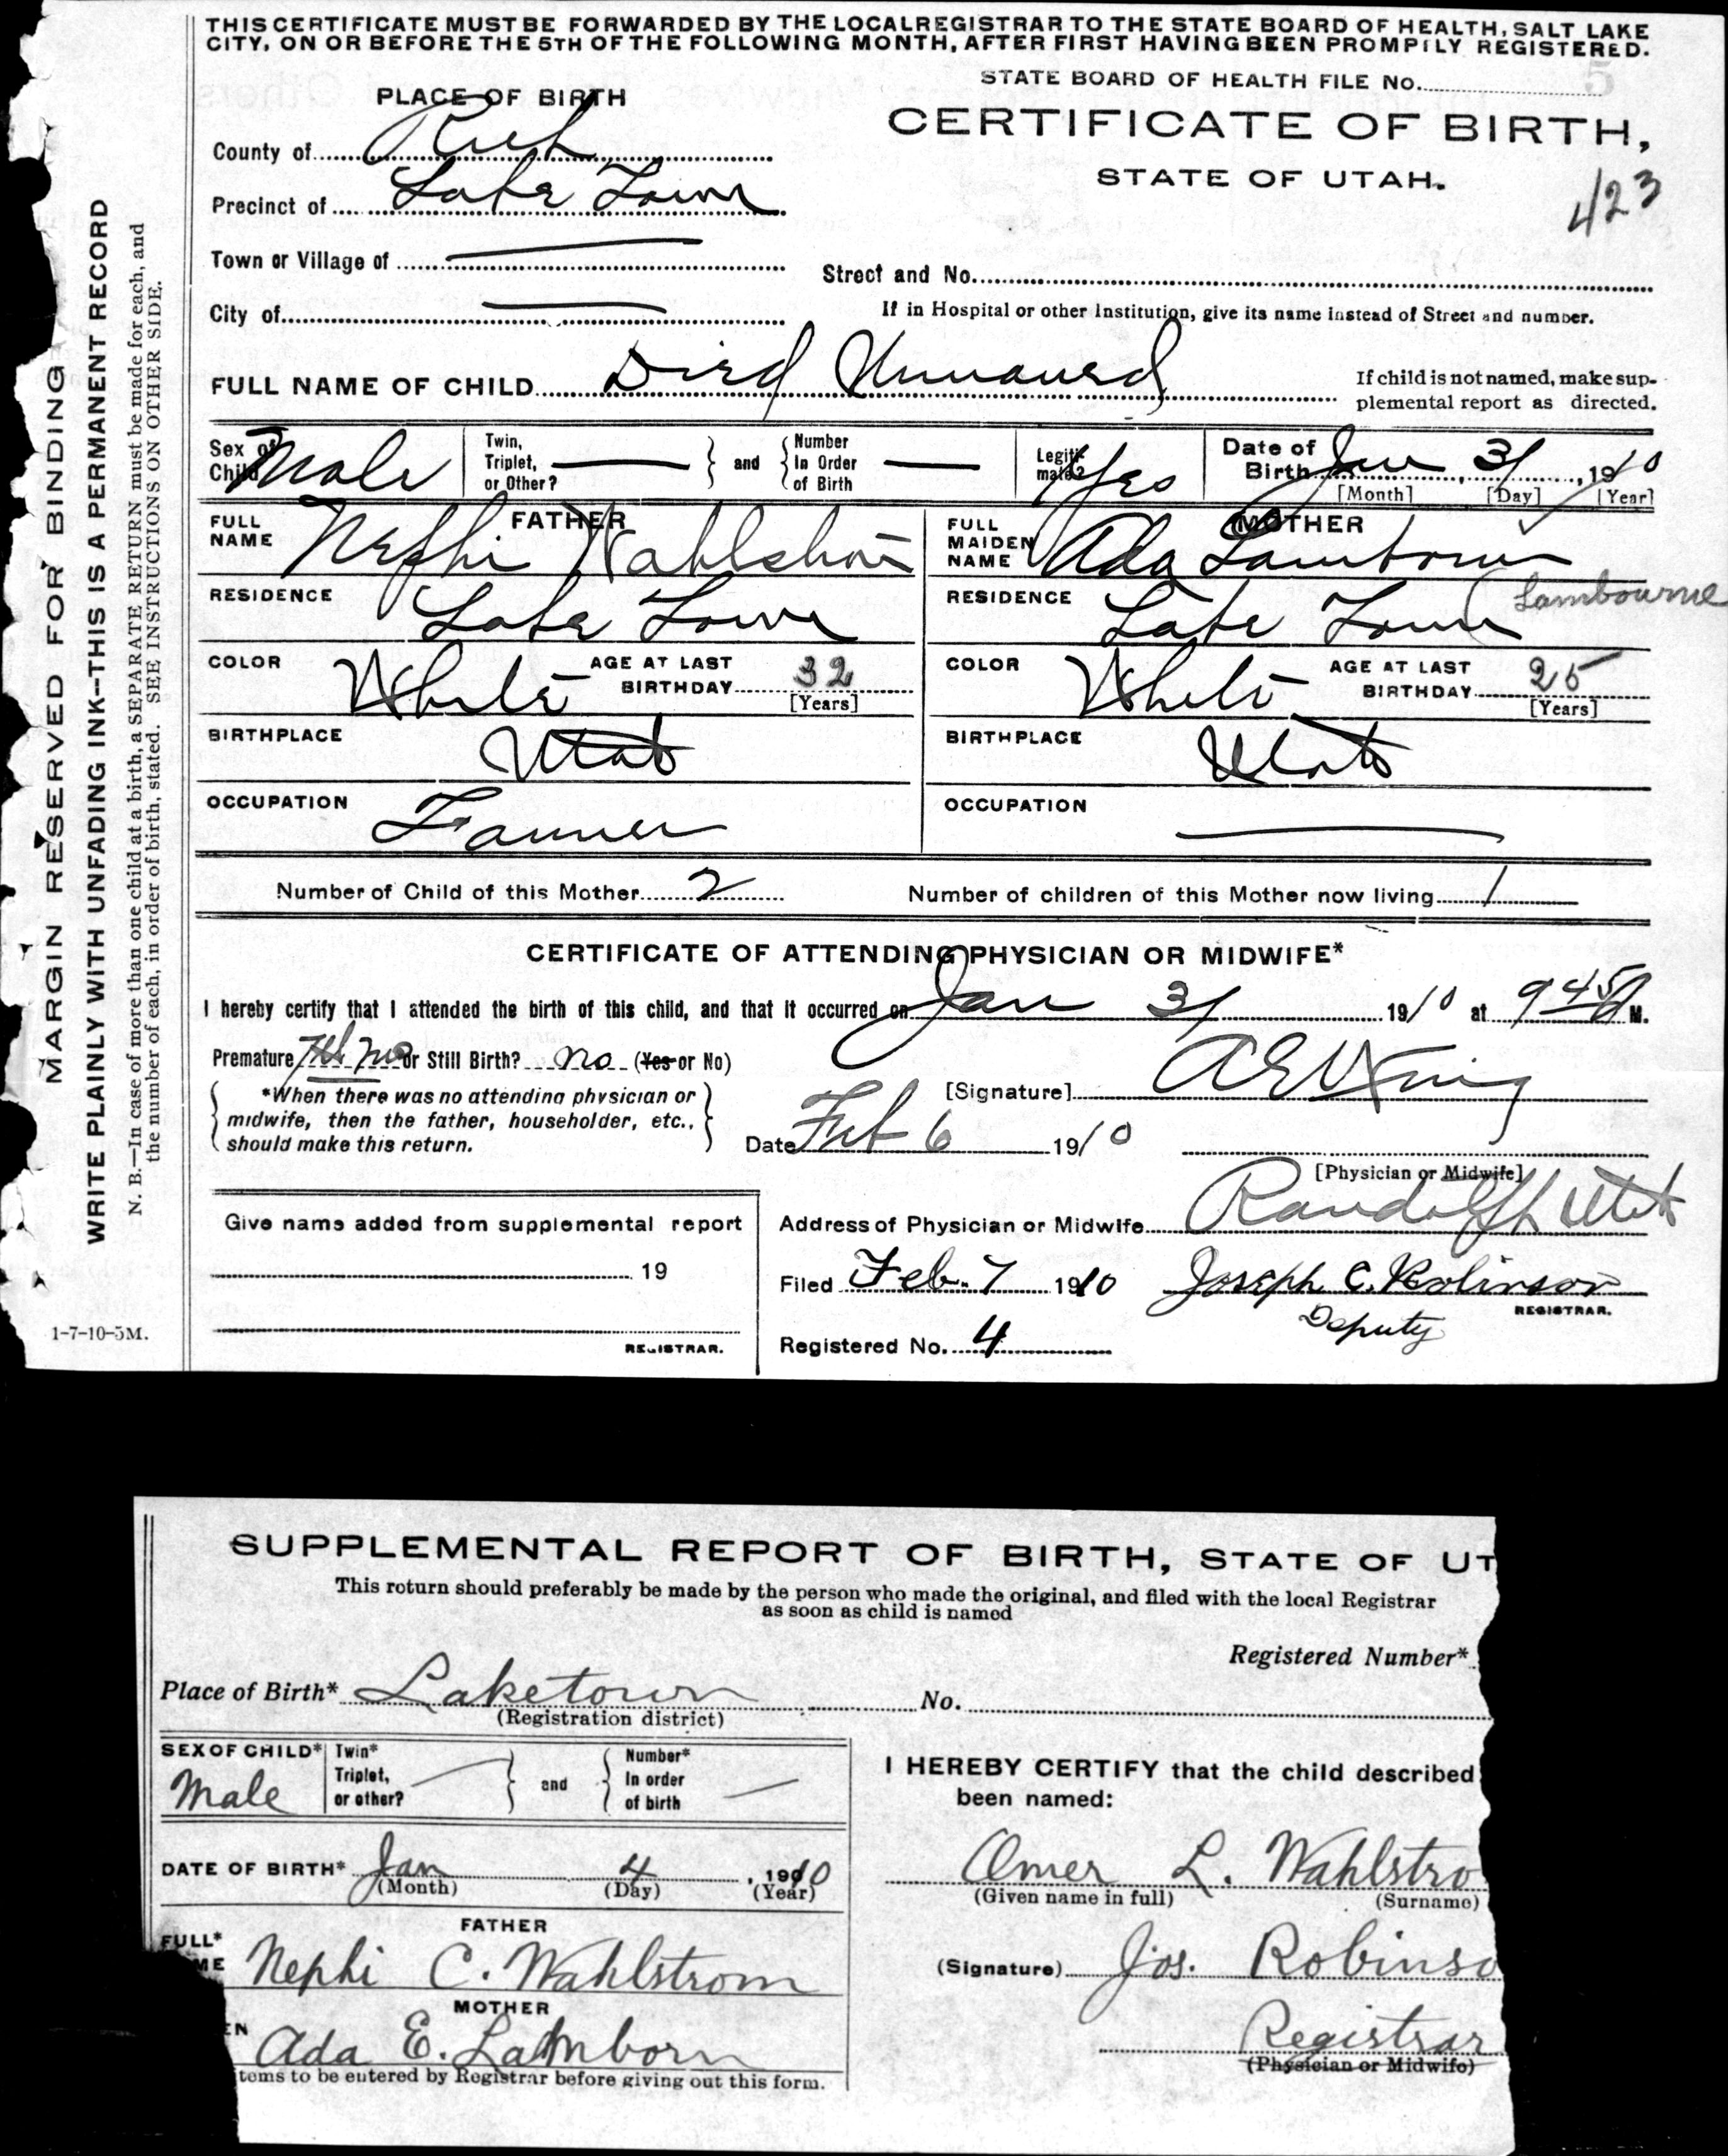 THIS CERTIFICATE MUST BE FORWARDED BY THE LOCAL REGISTRAR TO THE STATE BOARD OF HEALTH, SALT LAKE
CITY, ON OR BEFORE THE 5TH OF THE FOLLOWING MONTH, AFTER FIRST HAVING BEEN PROMPTLY REGISTERED.
STATE BOARD OF HEALTH FILE No. 5
PLACE OF BIRTH
CERTIFICATE OF BIRTH,
County of Rich
STATE OF UTAH.
423
Precinct of Lake Town
Town or Village of
Street and No.
City of
If in Hospital or other Institution, give its name instead of Street and number.
FULL NAME OF CHILD Died Unnamed
If child is not named, make sup-
plemental report as directed.
Sex of Child Male
Twin, Triplet, or Other? and Number In Order of Birth
Legiti- mate? Yes
Date of Birth Jan 31, 1910
[Month] [Day] [Year]
FATHER
FULL NAME Nephi Wahlstrom
MOTHER
FULL MAIDEN NAME Ada Lambourn
(Lambourne
RESIDENCE Lake Town
RESIDENCE Lake Town
COLOR White AGE AT LAST BIRTHDAY 32 [Years]
COLOR White AGE AT LAST BIRTHDAY 25 [Years]
BIRTHPLACE Utah
BIRTHPLACE Utah
OCCUPATION Farmer
OCCUPATION
Number of Child of this Mother 2 Number of children of this Mother now living 1
CERTIFICATE OF ATTENDING PHYSICIAN OR MIDWIFE*
I hereby certify that I attended the birth of this child, and that it occurred on Jan 31 1910 at 9 45 P M.
Premature 7th mo or Still Birth? no (Yes or No)
*When there was no attending physician or
midwife, then the father, householder, etc.,
should make this return.
[Signature]
Date Feb 6 1910
[Physician or Midwife]
Give name added from supplemental report
19
REGISTRAR.
Address of Physician or Midwife Randolph Utah
Filed Feb. 7 1910 Joseph C. Robinson
REGISTRAR.
Deputy
Registered No. 4
1-7-10-5M.
MARGIN RESERVED FOR BINDING
WRITE PLAINLY WITH UNFADING INK--THIS IS A PERMANENT RECORD
N. B.—In case of more than one child at a birth, a SEPARATE RETURN must be made for each, and
the number of each, in order of birth, stated. SEE INSTRUCTIONS ON OTHER SIDE.
SUPPLEMENTAL REPORT OF BIRTH, STATE OF UT
This return should preferably be made by the person who made the original, and filed with the local Registrar
as soon as child is named
Registered Number*
Place of Birth* Laketown No.
(Registration district)
SEX OF CHILD* Male
Twin* Triplet, or other? and Number* In order of birth
I HEREBY CERTIFY that the child described
been named:
DATE OF BIRTH* Jan 4, 1910
(Month) (Day) (Year)
Omer L. Wahlstro
(Given name in full) (Surname)
FATHER
FULL* ME Nephi C. Wahlstrom
(Signature) Jos. Robinso
MOTHER
EN Ada E. Lamborn
Registrar
(Physician or Midwife)
tems to be entered by Registrar before giving out this form.